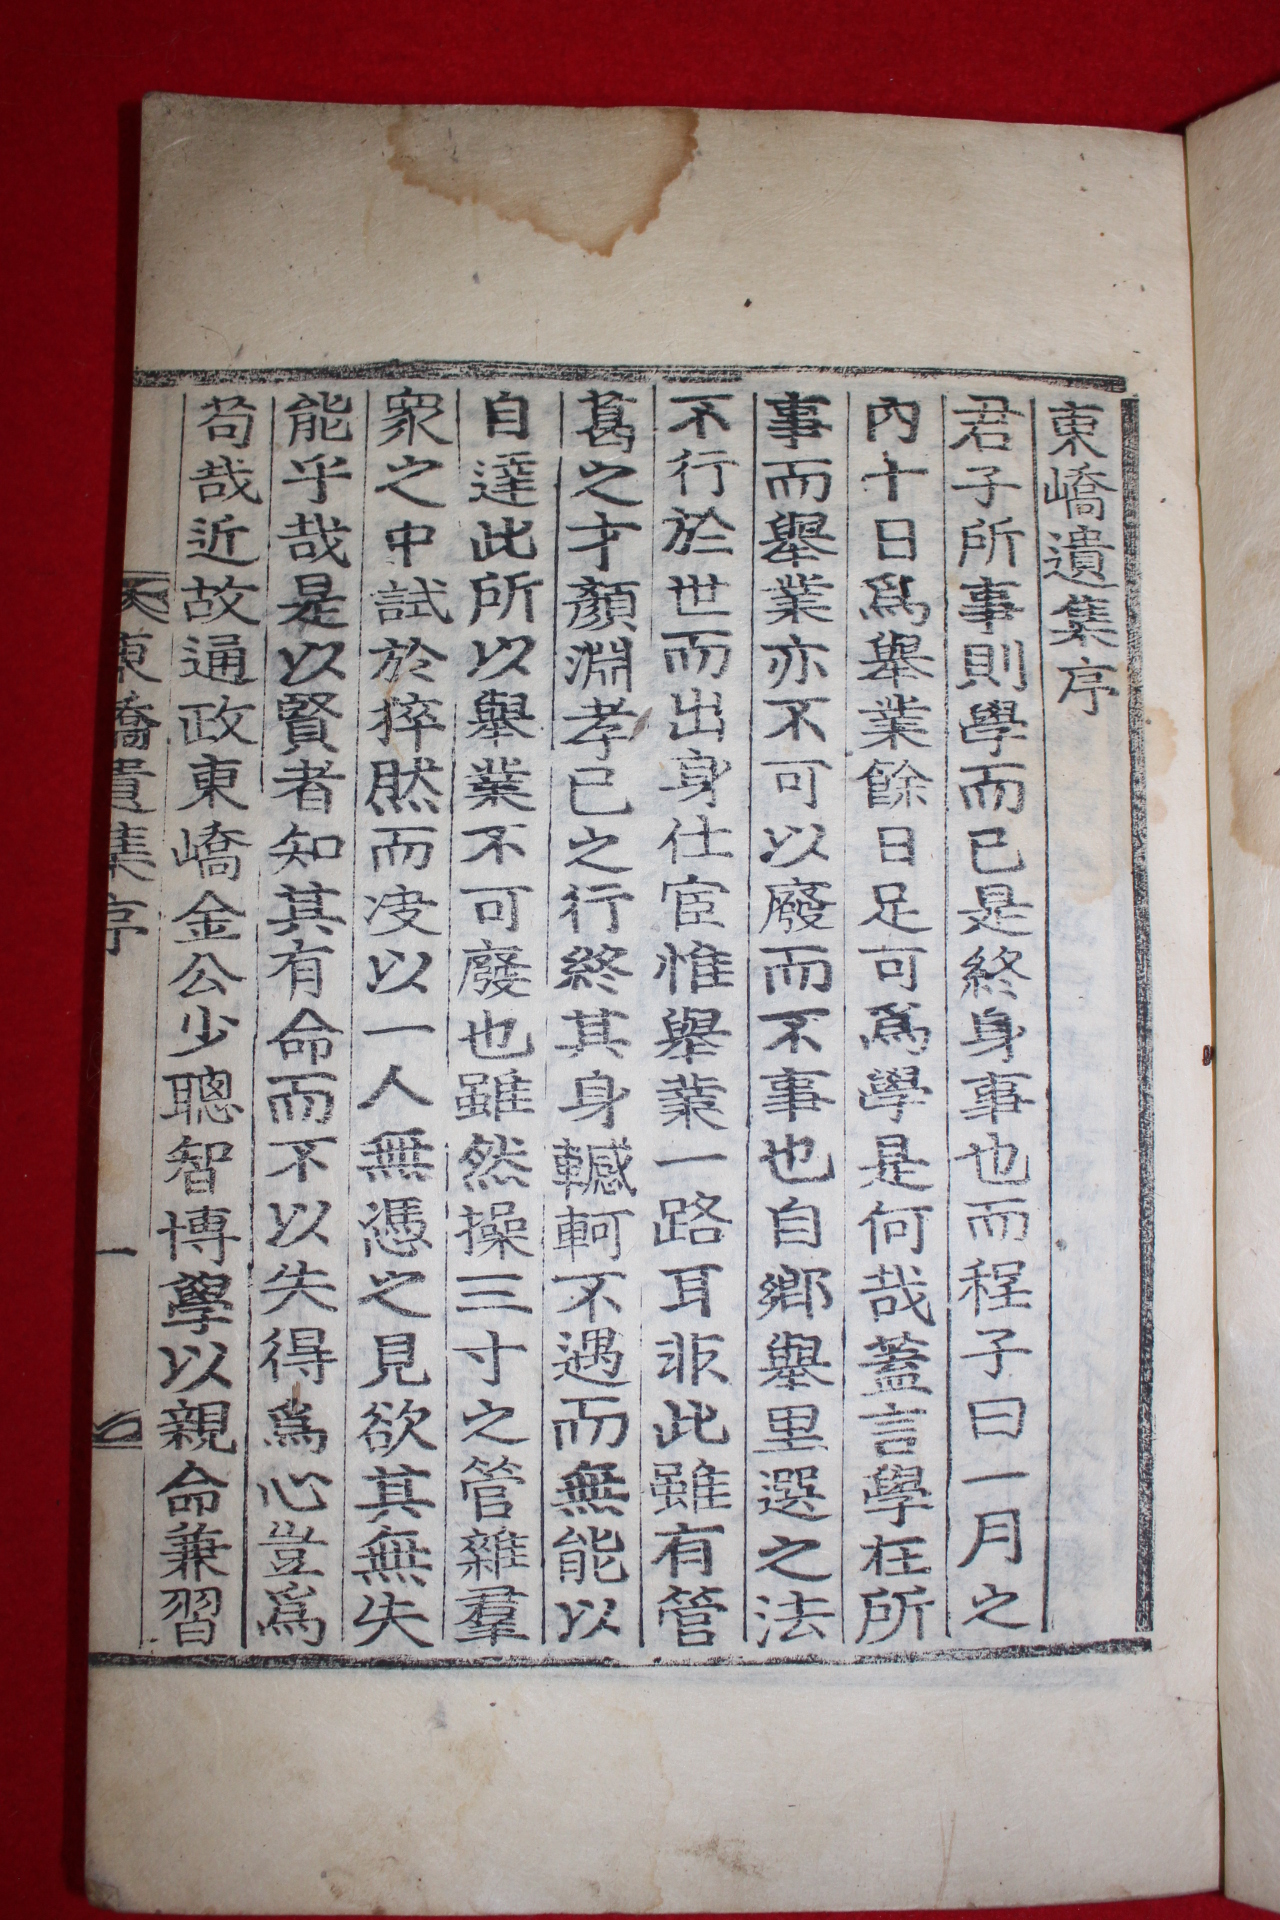 東嶠遺集序
君子所事則學而已是終身事也而程子曰一月之
內十日爲舉業餘日足可爲學是何哉蓋言學在所
事而舉業亦不可以廢而不事也自鄉舉里選之法
不行於世而出身仕宦惟舉業一路耳非此雖有管
葛之才顏淵孝已之行終其身轗軻不遇而無能以
自達此所以舉業不可廢也雖然操三寸之管雜羣
衆之中試於猝然而凌以一人無憑之見欲其無失
能乎哉是以賢者知其有命而不以失得爲心豈爲
苟哉近故通政東嶠金公少聰智博學以親命兼習
東嶠遺集序 一